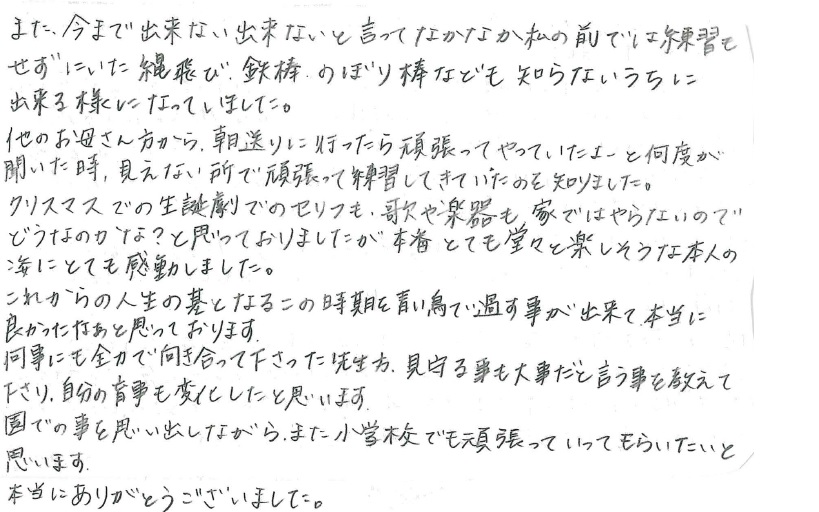 また、今まで出来ない出来ないと言ってなかなか私の前では練習も
せずにいた縄飛び、鉄棒、のぼり棒なども知らないうちに
出来る様になっていました。
他のお母さん方から、朝送りに行ったら頑張ってやっていたよーと何度か
聞いた時、見えない所で頑張って練習してきていたのを知りました。
クリスマスでの生誕劇でのセリフも、歌や楽器も、家ではやらないので
どうなのかな？と思っておりましたが本番とても堂々と楽しそうな本人の
姿にとても感動しました。
これからの人生の基となるこの時期を青い鳥で過す事が出来て、本当に
良かったなぁと思っております。
何事にも全力で向き合って下さった先生方、見守る事も大事だと言う事を教えて
下さり、自分の育事も変化したと思います。
園での事を思い出しながら、また小学校でも頑張っていってもらいたいと
思います。
本当にありがとうございました。